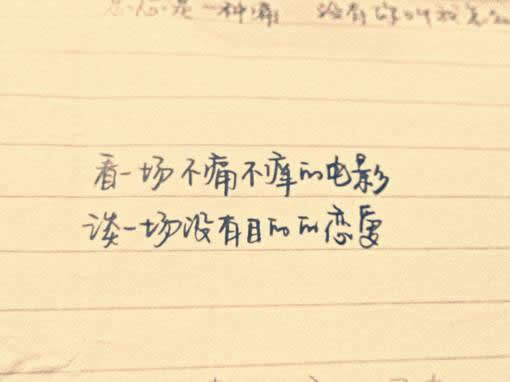 是一种病
看一场不痛不痒的电影
谈一场没有目的的恋爱